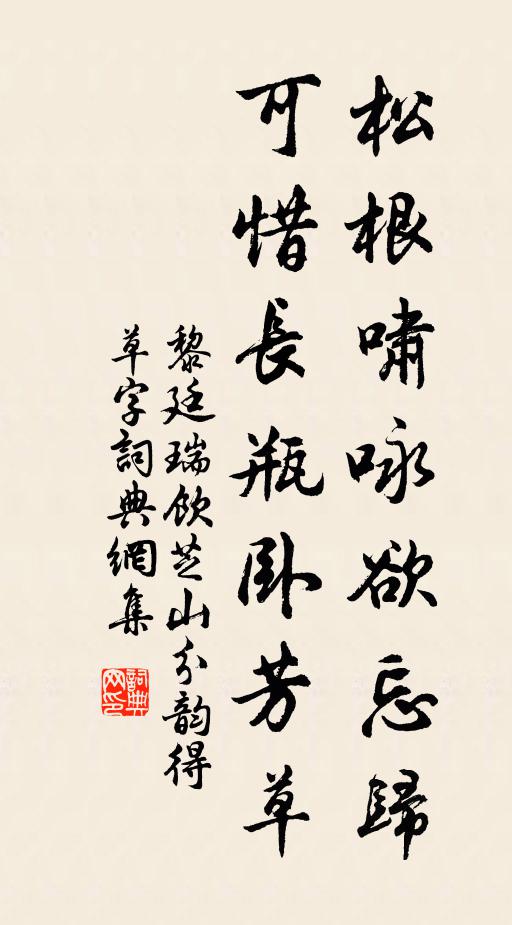 松根嘯咏欲忘歸
可惜長瓶卧芳草
黎廷瑞飲芝山分韵得
草字詞典網集
詞典
网印